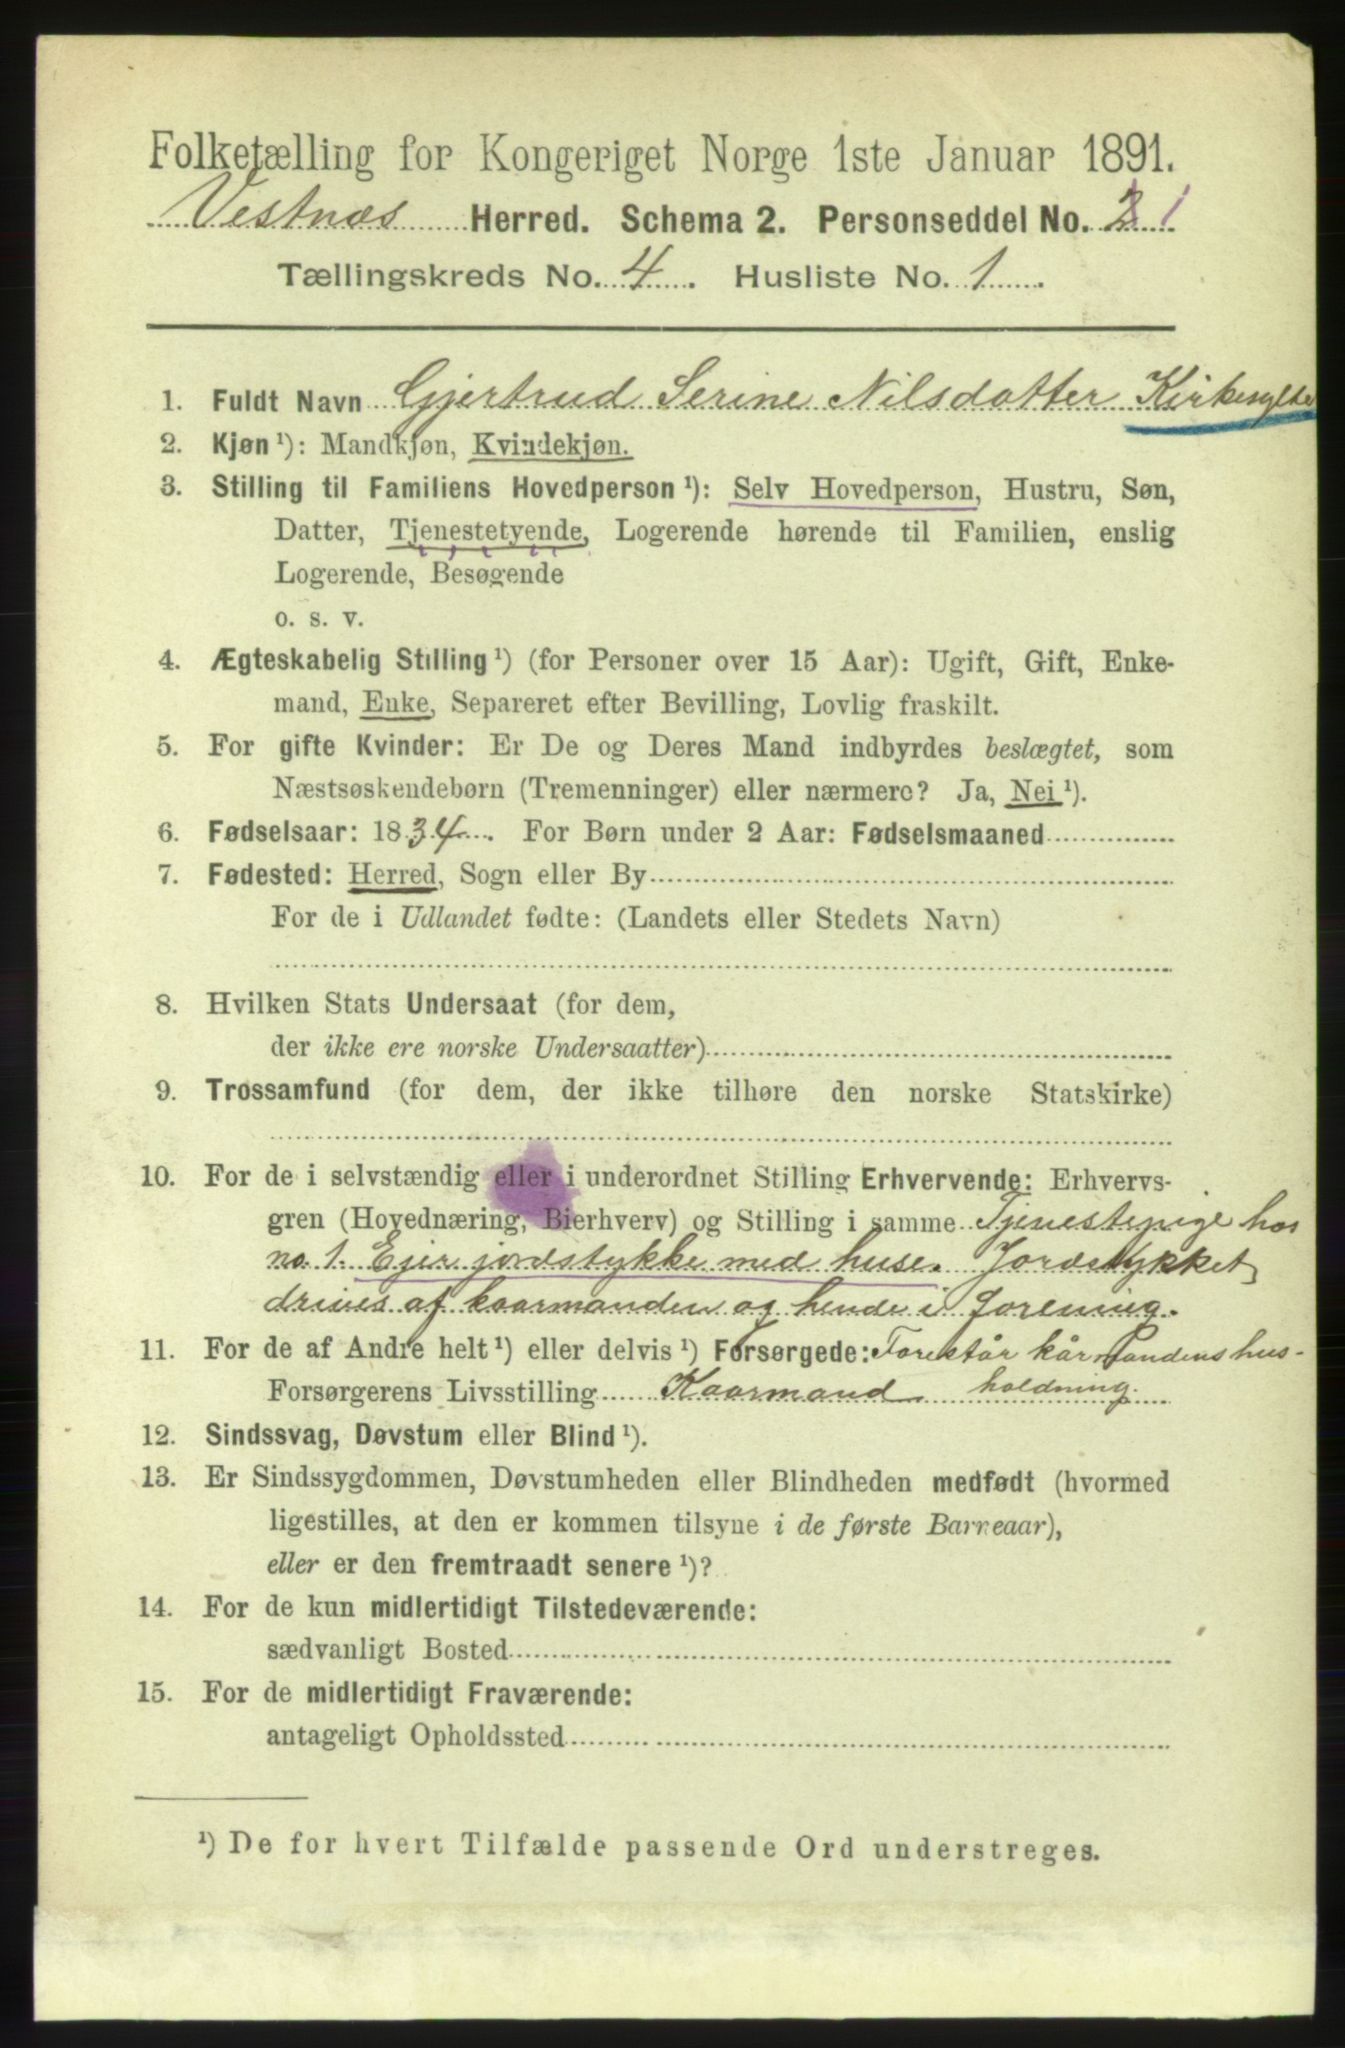 Folketælling for Kongeriget Norge 1ste Januar 1891.
Vestnæs Herred. Schema 2. Personseddel No. 2 1
Tællingskreds No. 4. Husliste No. 1.
1. Fuldt Navn Gjertrud Serine Nilsdatter Kirkesylte
2. Kjøn ¹): Mandkjøn, Kvindekjøn.
3. Stilling til Familiens Hovedperson ¹): Selv Hovedperson, Hustru, Søn,
Datter, Tjenestetyende, Logerende hørende til Familien, enslig
Logerende, Besøgende
o. s. v.
4. Ægteskabelig Stilling ¹) (for Personer over 15 Aar): Ugift, Gift, Enke-
mand, Enke, Separeret efter Bevilling, Lovlig fraskilt.
5. For gifte Kvinder: Er De og Deres Mand indbyrdes beslægtet, som
Næstsøskendebørn (Tremenninger) eller nærmere? Ja, Nei ¹).
6. Fødselsaar: 1834. For Børn under 2 Aar: Fødselsmaaned
7. Fødested: Herred, Sogn eller By
For de i Udlandet fødte: (Landets eller Stedets Navn)
8. Hvilken Stats Undersaat (for dem,
der ikke ere norske Undersaatter)
9. Trossamfund (for dem, der ikke tilhøre den norske Statskirke)
10. For de i selvstændig eller i underordnet Stilling Erhvervende: Erhvervs-
gren (Hovednæring, Bierhverv) og Stilling i samme Tjenestepige hos
no. 1. Ejer jordstykke med huse. Jordstykket
drives af kaarmanden og hende i forening.
11. For de af Andre helt ¹) eller delvis ¹) Forsørgede: Forestår kårmandens hus-
Forsørgerens Livsstilling Kaarmand holdning.
12. Sindssvag, Døvstum eller Blind ¹).
13. Er Sindssygdommen, Døvstumheden eller Blindheden medfødt (hvormed
ligestilles, at den er kommen tilsyne i de første Barneaar),
eller er den fremtraadt senere ¹)?
14. For de kun midlertidigt Tilstedeværende:
sædvanligt Bosted
15. For de midlertidigt Fraværende:
antageligt Opholdssted
¹) De for hvert Tilfælde passende Ord understreges.